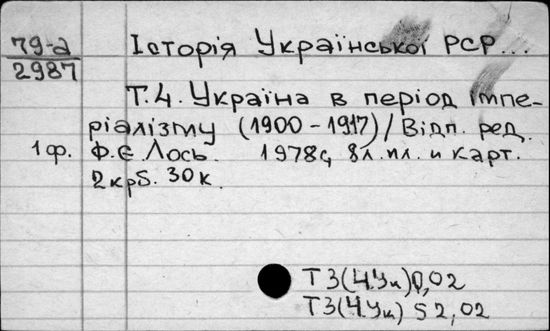 79-а
2987
Історія Української РСР...
Т.4. Україна в період імпе-
ріалізму (1900-1917)/Відп. ред.
1 ф. Ф.Є. Лось. 1978, 8л. ил. и карт.
2крб. 30к.
Т3(4Ук)0,02
Т3(4Ук) 52,02